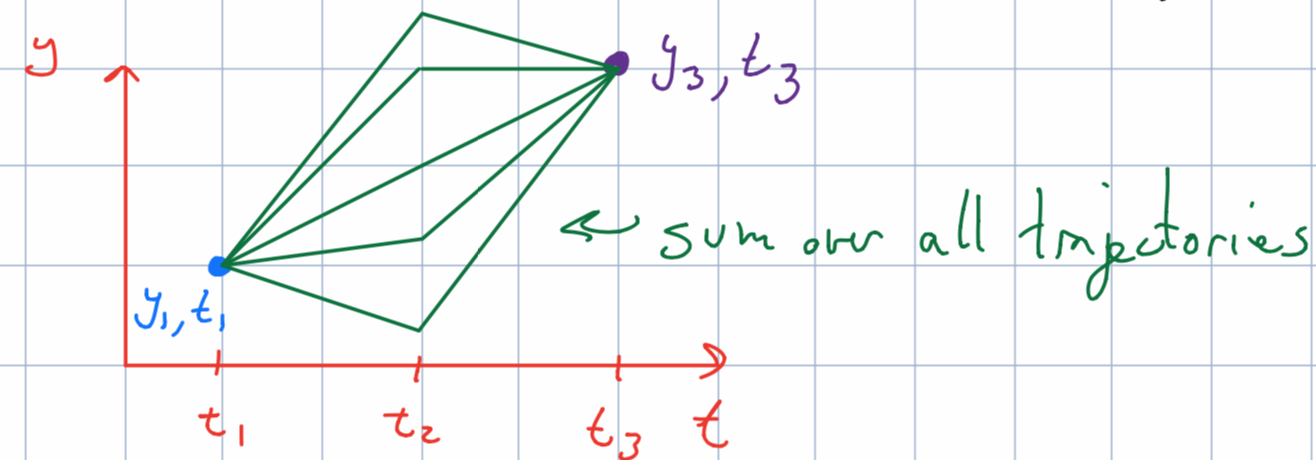 y
y₃, t₃
← sum over all trajectories
y₁, t₁
t₁ t₂ t₃ t